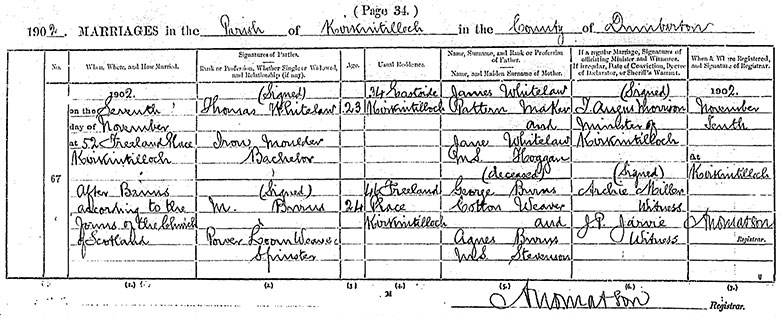 (Page 34.)
1902. MARRIAGES in the Parish of Kirkintilloch in the County of Dunbarton
No.
When, Where, and How Married.
Signatures of Parties.
Rank or Profession, Whether Single or Widowed, and Relationship (if any).
Age.
Usual Residence.
Name, Surname, and Rank or Profession of Father.
Name, and Maiden Surname of Mother.
If a regular Marriage, Signatures of officiating Minister and Witnesses.
If irregular, Date of Conviction, Decree of Declarator, or Sheriff's Warrant.
When & Where Registered, and Signature of Registrar.
67
1902.
on the Seventh
day of November
at 52 Freeland Place
Kirkintilloch
After Banns
according to the
Forms of the Church
of Scotland
(Signed)
Thomas Whitelaw
Iron Moulder
Bachelor
(Signed)
M. Burns
Power Loom Weaver
Spinster
23
24
34 Eastside
Kirkintilloch
Freeland
Place
Kirkintilloch
James Whitelaw
Pattern Maker
and
Jane Whitelaw
M.S. Hoggan
(deceased)
George Burns
Cotton Weaver
and
Agnes Burns
M.S. Stevenson
(Signed)
T. Angus Morrison
Minister of
Kirkintilloch
(Signed)
Archie Miller
Witness
J.P. Jarvie
Witness
1902.
November
Tenth
at
Kirkintilloch
Registrar.
(1.)
(2.)
(3.)
(4.)
(5.)
(6.)
(7.)
Registrar.